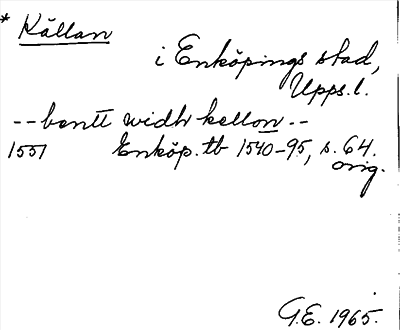 * Källan
i Enköpings stad,
Upps.l.
--bentt widh kellon--
1551 Enköp. tb 1540-95, s. 64.
orig.
G.E. 1965.